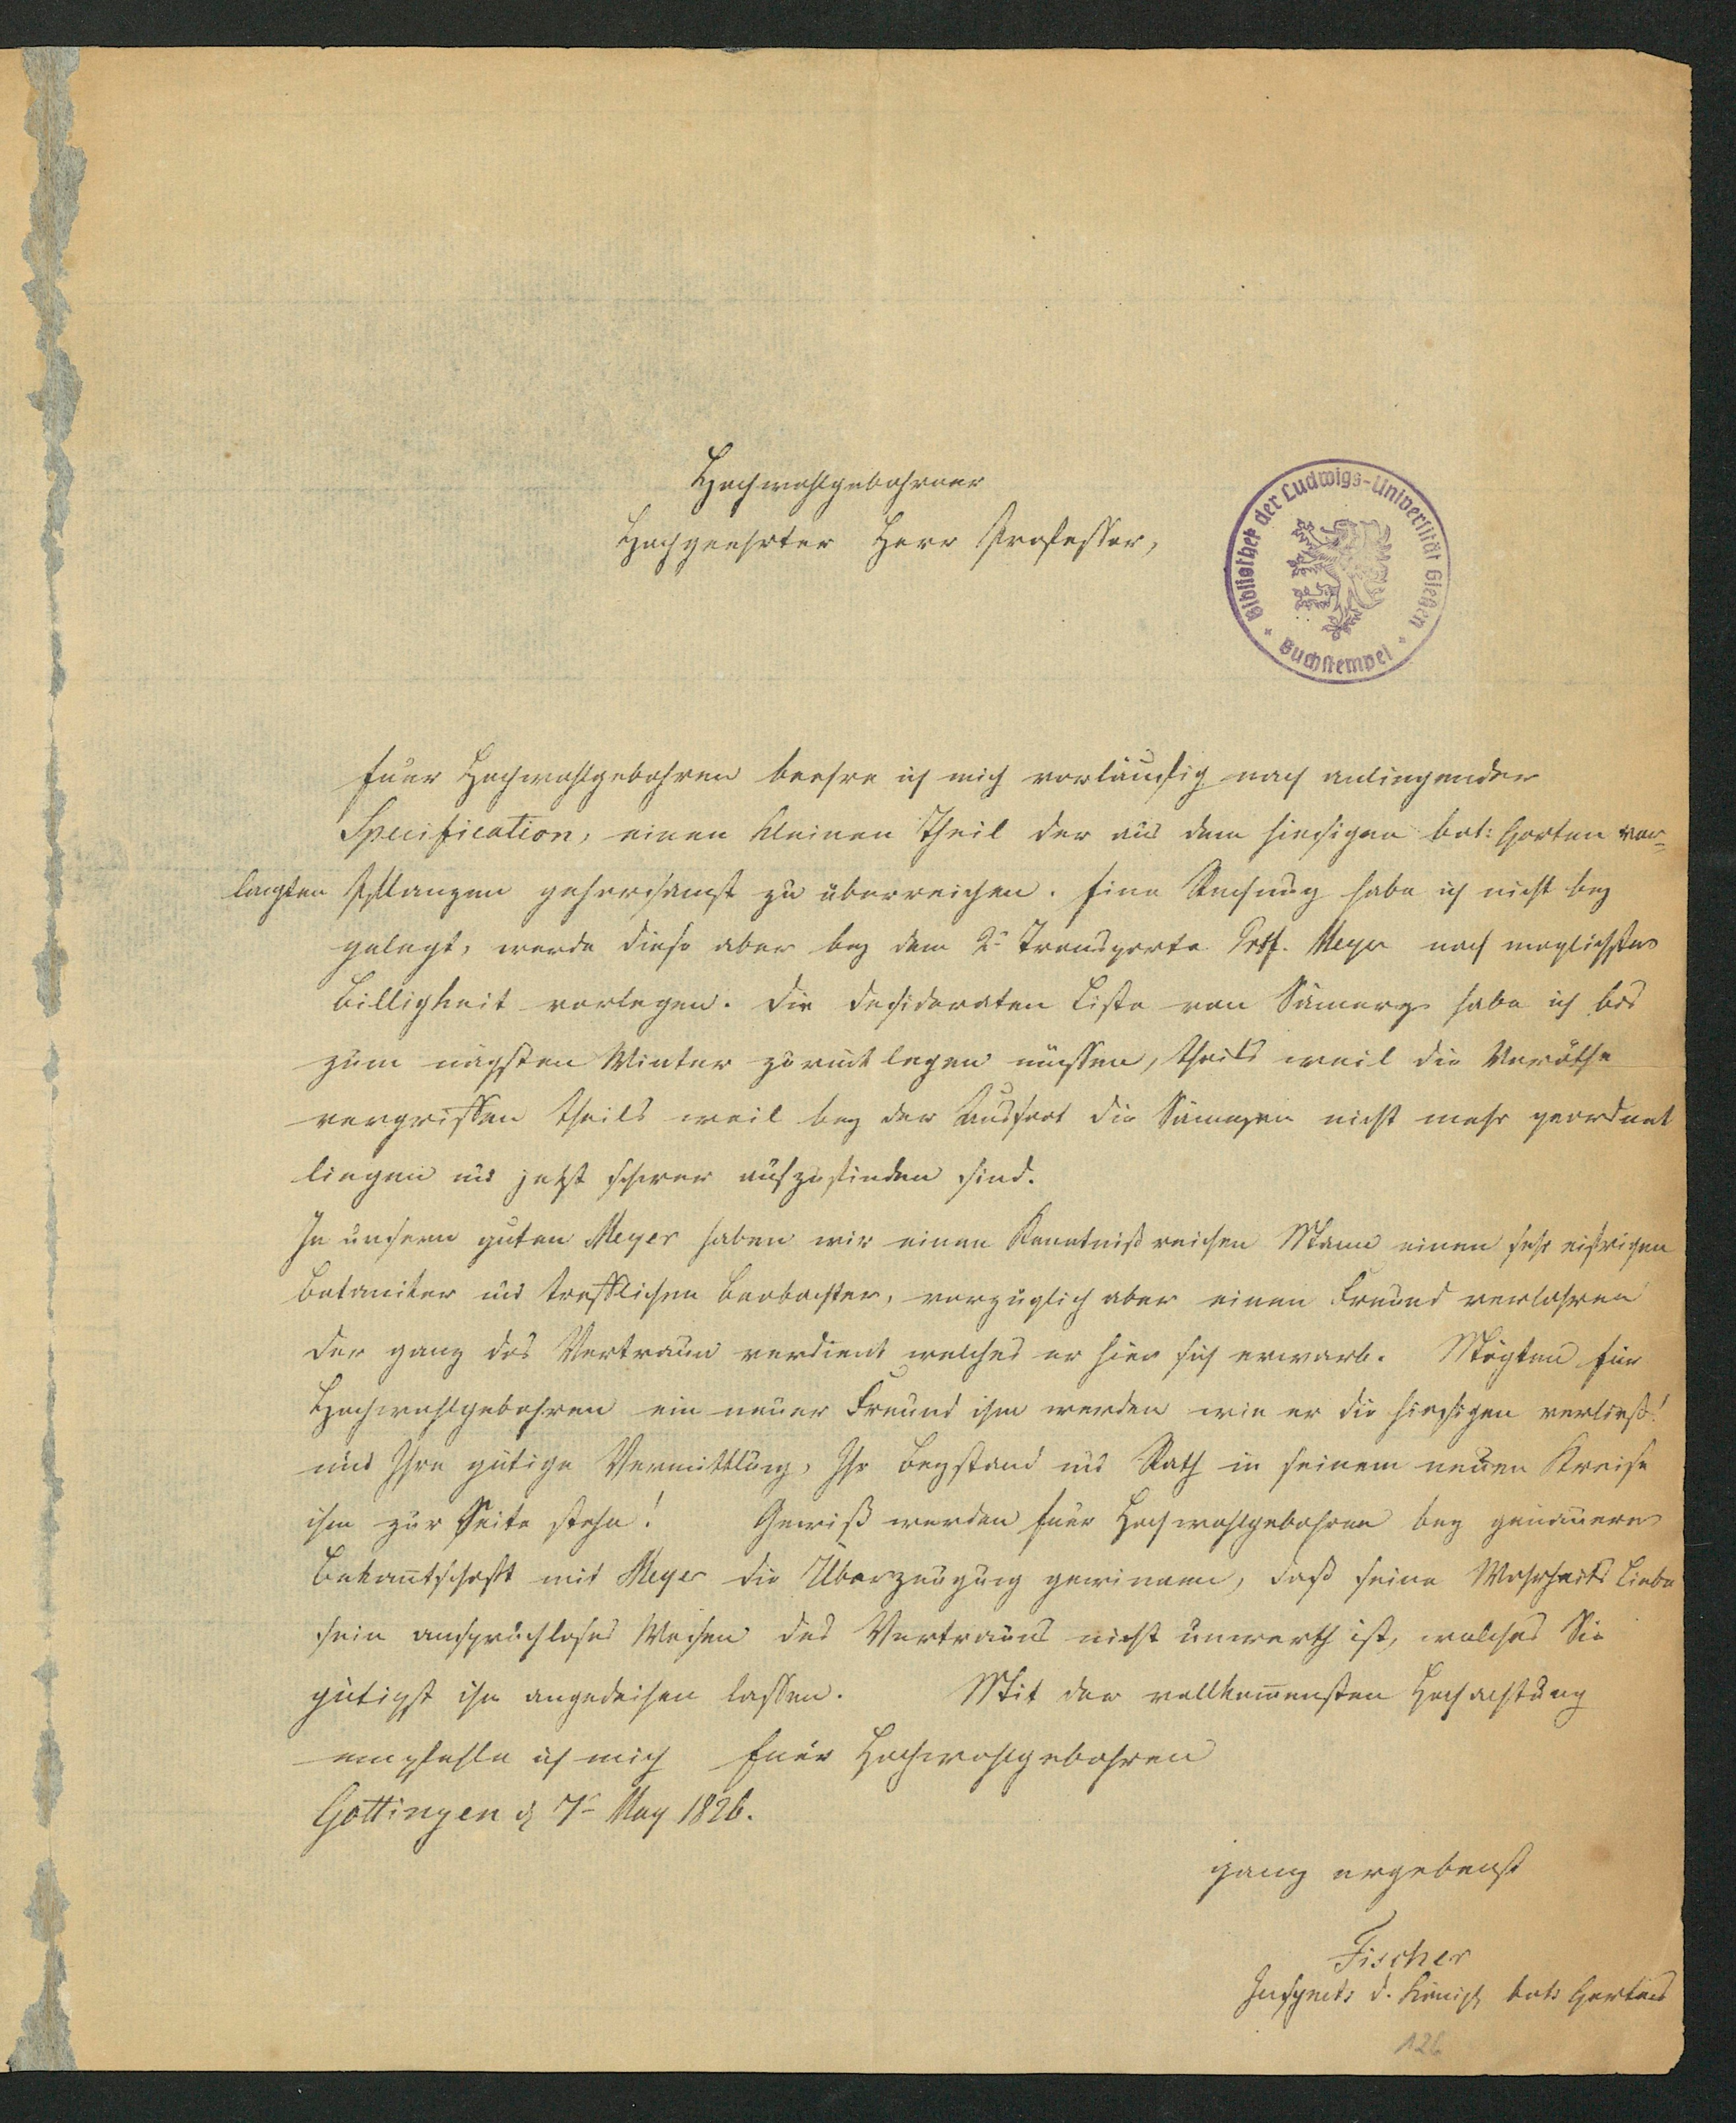 Hochwohlgebohrner
Hochgeehrter Herr Professor,
Bibliothek der Ludwigs-Universität Gießen
Buchstempel
Euer Hochwohlgebohren beehre ich mich vorläufig nach anliegender
Specification, einen kleinen Theil der aus dem hiesigen bot: Garten ver-
langten Pflanzen gehorsamst zu überreichen. Eine Rechnung habe ich nicht bey
gelegt, werde diese aber bey dem 2ⁿ Transporte Meyer nach moglichster
Billigkeit vorlegen. Die Desideraten Liste von Sämerey habe ich bis
zum nächsten Winter zurück legen müssen, theils weil die Voräthe
vergriffen theils weil bey der Aussaat die Sämereyen nicht mehr geordnet
liegen und jetzt schwer aufzufinden sind.
In unserm guten Meyer haben wir einen Kenntnißreichen Mann einen sehr eifrigen
Botaniker und trefflichen Beobachter, vorzüglich aber einen Freund verlohren
der ganz das Vertraun verdient welches er hier sich erwarb. Mögten Euer
Hochwohlgebohren ein neuer Freund ihm werden wie er die hiesigen verließ!
und Ihre gütige Vermittlung, Ihr Beystand und Rath in seinem neuen Kreise
ihm zur Seite stehn! Gewiß werden Euer Hochwohlgebohren bey genauerer
Bekantschaft mit Meyer die Überzeugung gewinnen, daß seine Wahrheits Liebe
sein anspruchloses Wesen des Vertrauns nicht unwerth ist, welches Sie
gütigst ihm angedeihen lassen. Mit der vollkomensten Hochachtung
empfehle ich mich Euer Hochwohlgebohren
Gottingen d 7ⁿ May 1826.
ganz ergebenst
Fischer
Inspect: d. Königl bot: Gartens
126